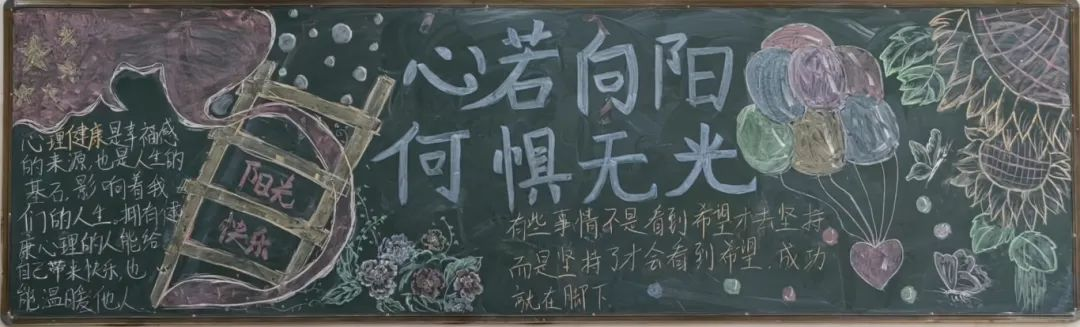 心理健康是幸福感
的来源,也是人生的
基石,影响着我
们的人生,拥有健
康心理的人能给
自己带来快乐,也
能温暖他人
阳光
快乐
心若向阳
何惧无光
有些事情不是看到希望才去坚持
而是坚持了才会看到希望,成功
就在脚下